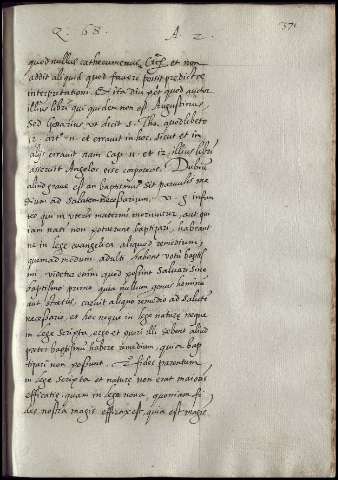 Q. 68. A. 2. 371
quod nullus cathecumenus, &c. et non
addit aliquid quod favere possit predictæ
interpretationi. Et ita dici pòt quod auctor
illius libri qui quidem non est Augustinus,
sed Genadius, ut dicit S. Tho. quodlibeto
12. artº. 11. et erravit in hoc, sicut et in
alijs erravit nam Cap. 11. et 12. illius libri
asseruit Angelos esse corporeos. Dubiũ
aliud grave est an baptismus sit parvulis me
dium ad salutem necessarium, v. g. infan
tes qui in utero materno moriuntur, aut qui
iam nati non potuerunt baptizari, habeant
ne in lege evangelica aliquod remedium,
quemadmodum adulti habent votũ baptis
mi. videtur enim quod possint salvari sine
baptismo primo quia nullum genus hominũ
aut status, caruit aliquo remedio ad salutẽ
necessario, et hoc neque in lege naturæ neque
in lege scripta, ergo et pueri illi debent aliud
præter baptismũ habere remedium, quia bap
tizari non possunt. 2. fides parentum
in lege scripta et naturæ non erat maioris
efficatiæ, quam in lege nova, quoniam fi
des nostra magis efficax est, quia est magis